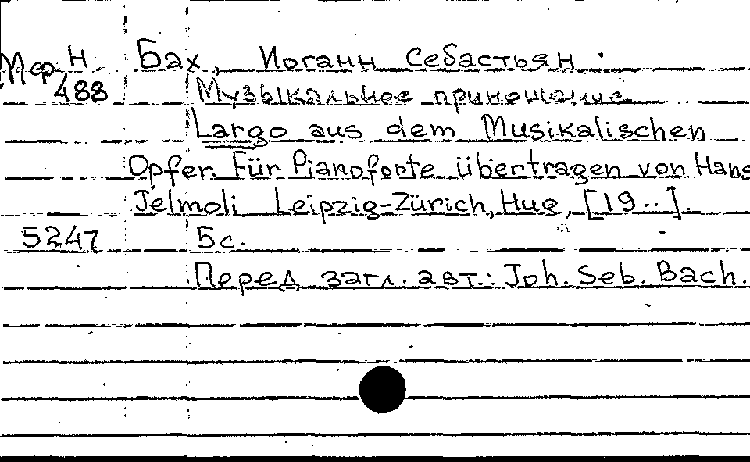 Мср Н Бах, Иоганн Себастьян.
488 Музыкальное приношение
Largo aus dem Musikalischen
Opfer. Für Pianoforte übertragen von Hans
Jelmoli Leipzig-Zürich, Hug, [19..].
5247 5с.
Перед загл. авт.: Joh. Seb. Bach.